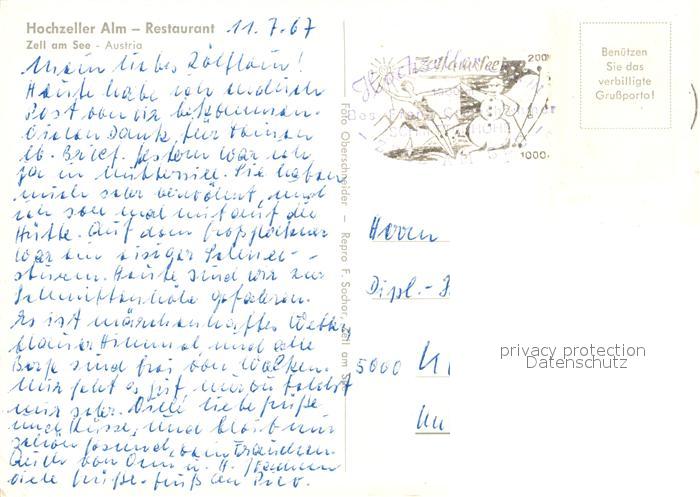 Hochzeller Alm – Restaurant
Zell am See - Austria
11.7.67
Mein liebes Wölflein!
Heute habe ich endlich
Post von dir bekommen.
Vielen Dank für Deinen
lb. Brief. Gestern war ich
ja in Mittersill. Sie haben
mich sehr verwöhnt, und
ich soll mal mit auf die
Hütte. Auf dem Großglockner
war ein eisiger Schnee-
sturm. Heute sind wir zur
Schmittenhöhe gefahren.
Es ist märchenhaftes Wetter
blauer Himmel und alle
Berge sind frei von Wolken.
Mir geht es gut nur du fehlst
mir sehr. Viele liebe Grüße
und Küsse, und bleib mir
schön gesund, beim
Auch von Omi u. H.
viele Grüße.
Foto Oberschneider – Repro F. Sochor, Zell am See
Zell am See
2000
1000
Benützen
Sie das
verbilligte
Grußporto!
Herrn
Dipl.-
5000
privacy protection
Datenschutz